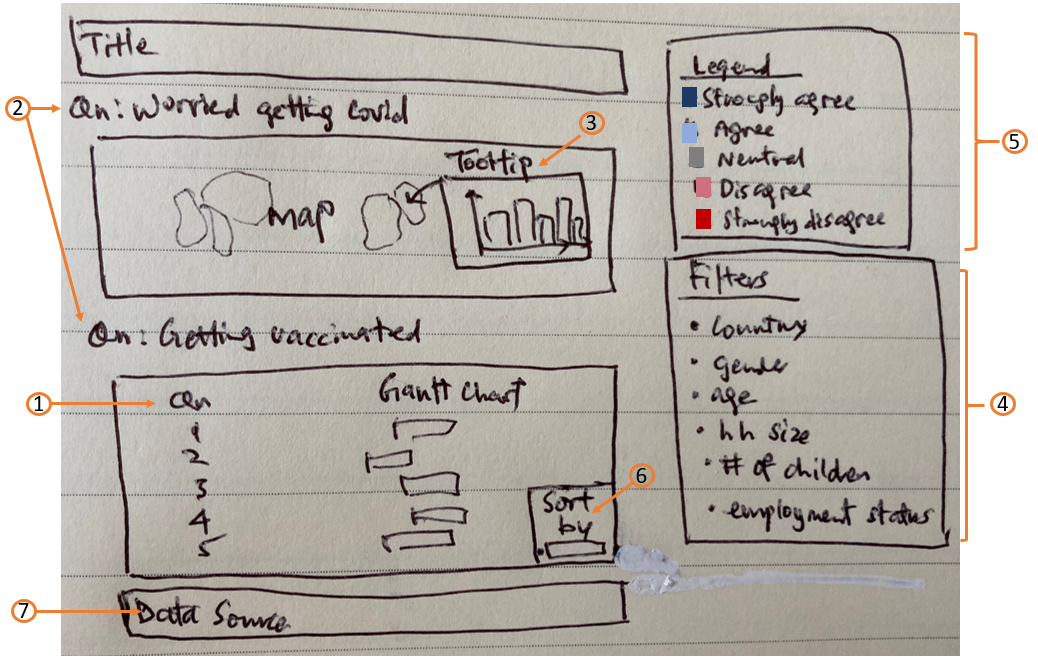 Title
2
Qn: Worried getting Covid
3
Tooltip
map
Qn: Getting vaccinated
1
Qn
Gantt Chart
1
2
3
4
5
6
Sort
by
7
Data Source
Legend
Strongly agree
Agree
Neutral
Disagree
Strongly disagree
5
Filters
• Country
• gender
• age
• hh size
• # of children
• employment status
4